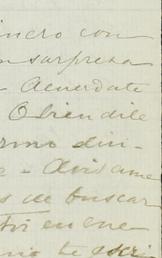 inero con
n sorpresa
- Acuerdate
O bien dile
rmo din-
- Avisame
s de buscar
Tri en cue-
no te escri